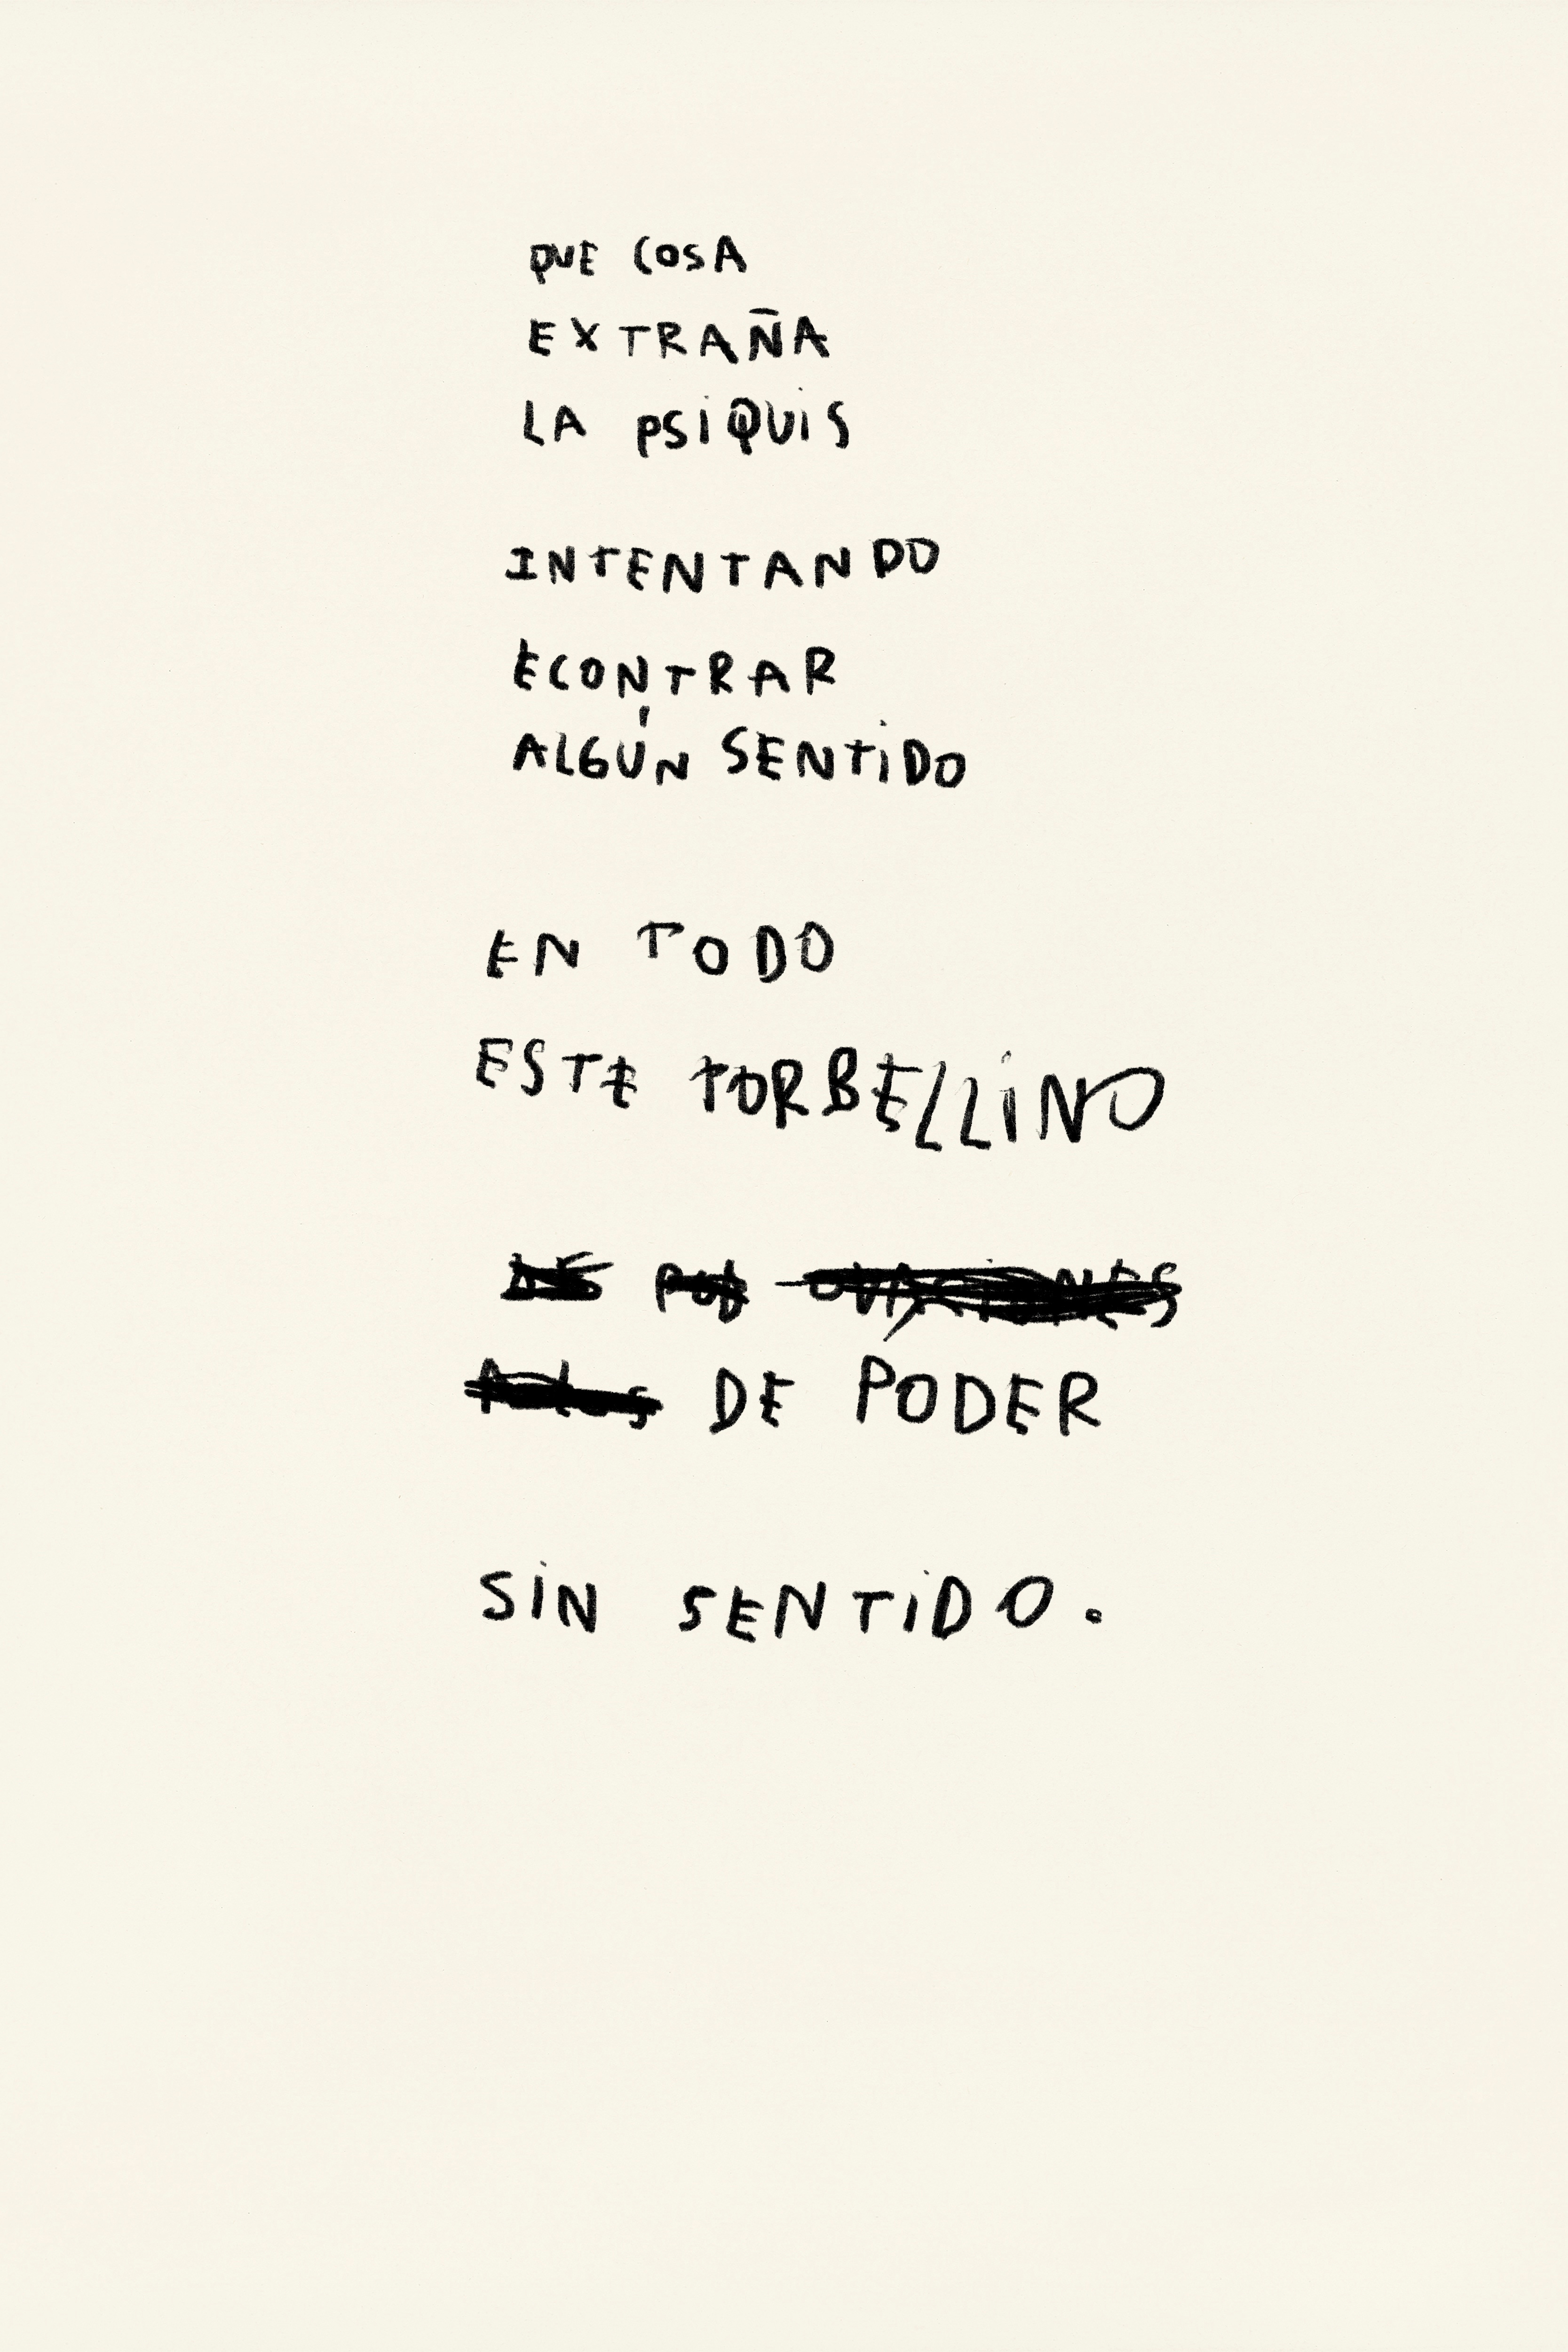 QUE COSA
EXTRAÑA
LA PSiQUiS
INTENTANDO
ECONTRAR
ALGÚN SENTiDO
EN TODO
ESTE TORBELLiNO
DE PODER
SiN SENTiDO.